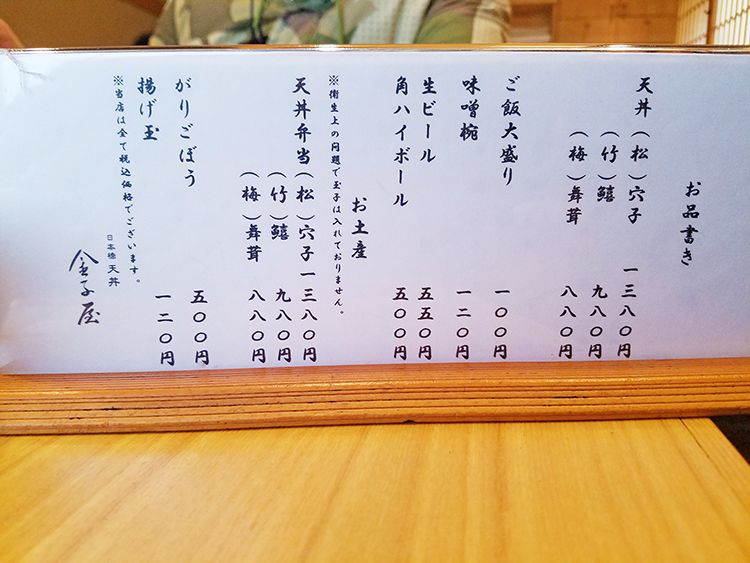 お品書き
天丼（松）穴子 一三八〇円
（竹）鱚 九八〇円
（梅）舞茸 八八〇円
ご飯大盛り 一〇〇円
味噌椀 一二〇円
生ビール 五五〇円
角ハイボール 五〇〇円
お土産
※衛生上の問題で玉子は入れておりません。
天丼弁当（松）穴子 一三八〇円
（竹）鱚 九八〇円
（梅）舞茸 八八〇円
がりごぼう 五〇〇円
揚げ玉 一二〇円
※当店は全て税込価格でございます。
日本橋 天丼
金子屋